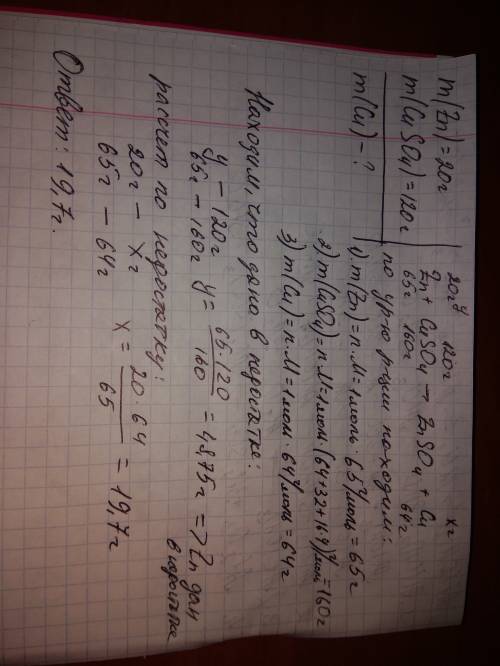 m(Zn)=20г
m(CuSO4)=120г
m(Cu)-?
20г y 120г xг
Zn + CuSO4 → ZnSO4 + Cu
65г 160г 64г
по ур-ю р-ции находим:
1) m(Zn)=n·M=1моль·65г/моль=65г
2) m(CuSO4)=n·M=1моль·(64+32+16·4)г/моль=160г
3) m(Cu)=n·M=1моль·64г/моль=64г
Находим, что дано в недостатке:
y – 120г
65г – 160г y = 65·120 / 160 = 48,75г => Zn дан в недостатке
рассчет по недостатку:
20г – xг
65г – 64г x = 20·64 / 65 = 19,7г
Ответ: 19,7г.